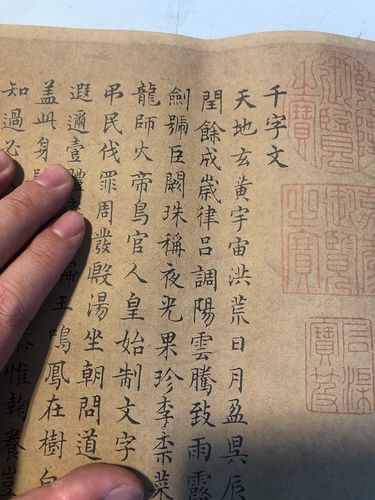 千字文
天地玄黃宇宙洪荒日月盈昃辰
閏餘成歲律呂調陽雲騰致雨露
劍號巨闕珠稱夜光果珍李柰菜
龍師火帝鳥官人皇始制文字
弔民伐罪周發殷湯坐朝問道
遐邇壹體歸王鳴鳳在樹白
蓋此身恭惟鞠養豈
知過必